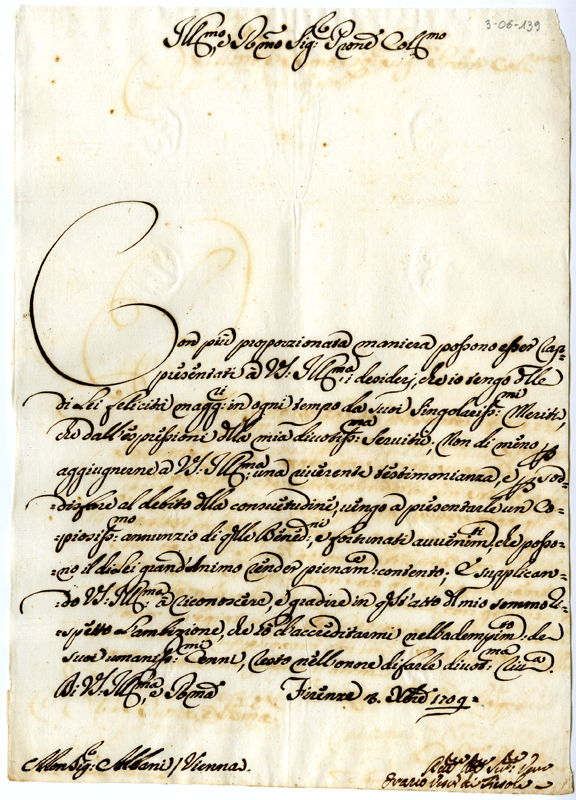 3-06-139
Ill.mo e R.mo Sig.re Pron Col.mo
Con più proporzionata maniera possono esser rap=
presentati à V.S. Ill.ma i desiderj, che io tengo dlle
di Lei felicità magg.ri in ogni tempo da suoi singolariss.mi Meriti,
che dall'espressioni dlla mia divotiss.ma Servitù, Non di meno p
aggiugnerne à V.S. Ill.ma una riverente testimonianza, e p sod=
=disfare al debito dlla consuetudine, vengo a presentarle un Co=
=piosiss.mo annunzio di qlle Bened.ni, e fortunati avvenim.ti, che posso=
=no il di Lei grand'Animo render pienam.e contento; E supplican=
=do V.S. Ill.ma à riconoscere, e gradire in qst'atto di mio sommo ri=
=spetto l'ambizione, che hò d'accreditarmi nell'adempim.to de
suoi umaniss.mi Cenni, resto nell'onore di farle divot.ma riv.a
Di V.S. Ill.ma, e R.ma Firenze Xbre 1709=
Monsig.re Albani / Vienna.
Orazio Vesc.o di Fiesole